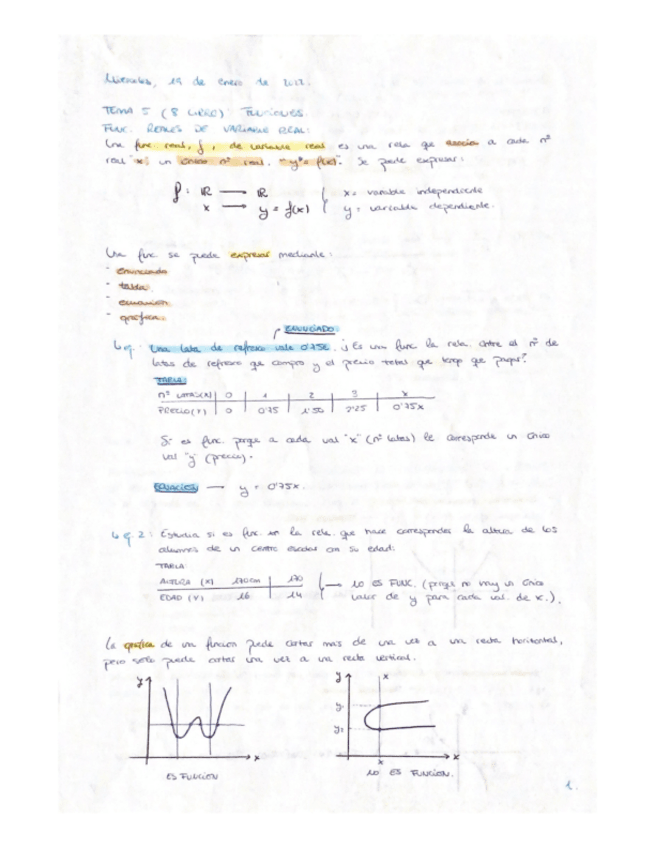 Miércoles, 19 de enero de 2012.
TEMA 5 (8 LIBRO) FUNCIONES.
FUNC. REALES DE VARIABLE REAL:
Una func. real, f, de variable real es una rela que asocia a cada nº
real "x" un único nº real, "y" = f(x)". Se puede expresar:
f: ℝ → ℝ
x → y = f(x)
x = variable independiente
y = variable dependiente.
Una func se puede expresar mediante:
- enunciado
- tabla.
- ecuación
- gráfica.
ENUNCIADO
Una lata de refresco vale 0'75€. ¿Es una func la rela. entre el nº de
latas de refresco que compro y el precio total que tengo que pagar?
TABLA:
Nº LATAS(X) | 0 | 1 | 2 | 3 | x
PRECIO(Y) | 0 | 0'75 | 1'50 | 2'25 | 0'75x
Si es func. porque a cada val "x" (nº latas) le corresponde un único
val "y" (precio).
ECUACION → y = 0'75x.
eg. 2: Estudia si es func. la rela. que hace corresponder la altura de los
alumnos de un centro escolar con su edad:
TABLA
ALTURA (X) 170cm | 170
EDAD (Y) 16 | 14
→ NO ES FUNC. (porque no hay un único
valor de y para cada val. de x.).
La gráfica de una función puede cortar más de una vez a una recta horizontal,
pero solo puede cortar una vez a una recta vertical.
y
x
ES FUNCION
y
x
y
y₂
x
x
NO ES FUNCION.
1.